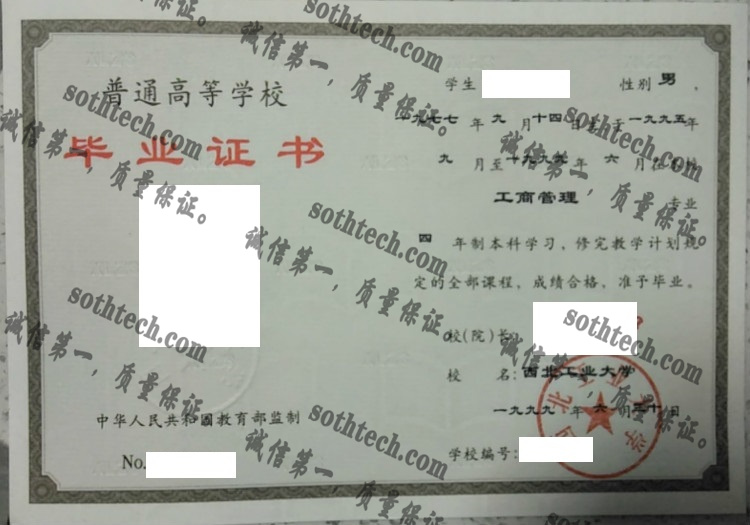 普通高等学校
毕业证书
中华人民共和国教育部监制
No.
学生 性别 男 ,
一九七七 年 九 月 十四 日生于 一九九五 年
九 月至 一九九九 年 六 月在本校
工商管理 专业
四 年制本科学习,修完教学计划规
定的全部课程,成绩合格,准予毕业。
校(院)长:
校 名: 西北工业大学
一九九九 年 六 月三十日
学校编号:
西北工业大学
sothtech.com
诚信第一,质量保证。
sothtech.com
诚信第一,质量保证。
sothtech.com
诚信第一,质量保证。
sothtech.com
诚信第一,质量保证。
sothtech.com
诚信第一,质量保证。
sothtech.com
诚信第一,质量保证。
sothtech.com
诚信第一,质量保证。
sothtech.com
诚信第一,质量保证。